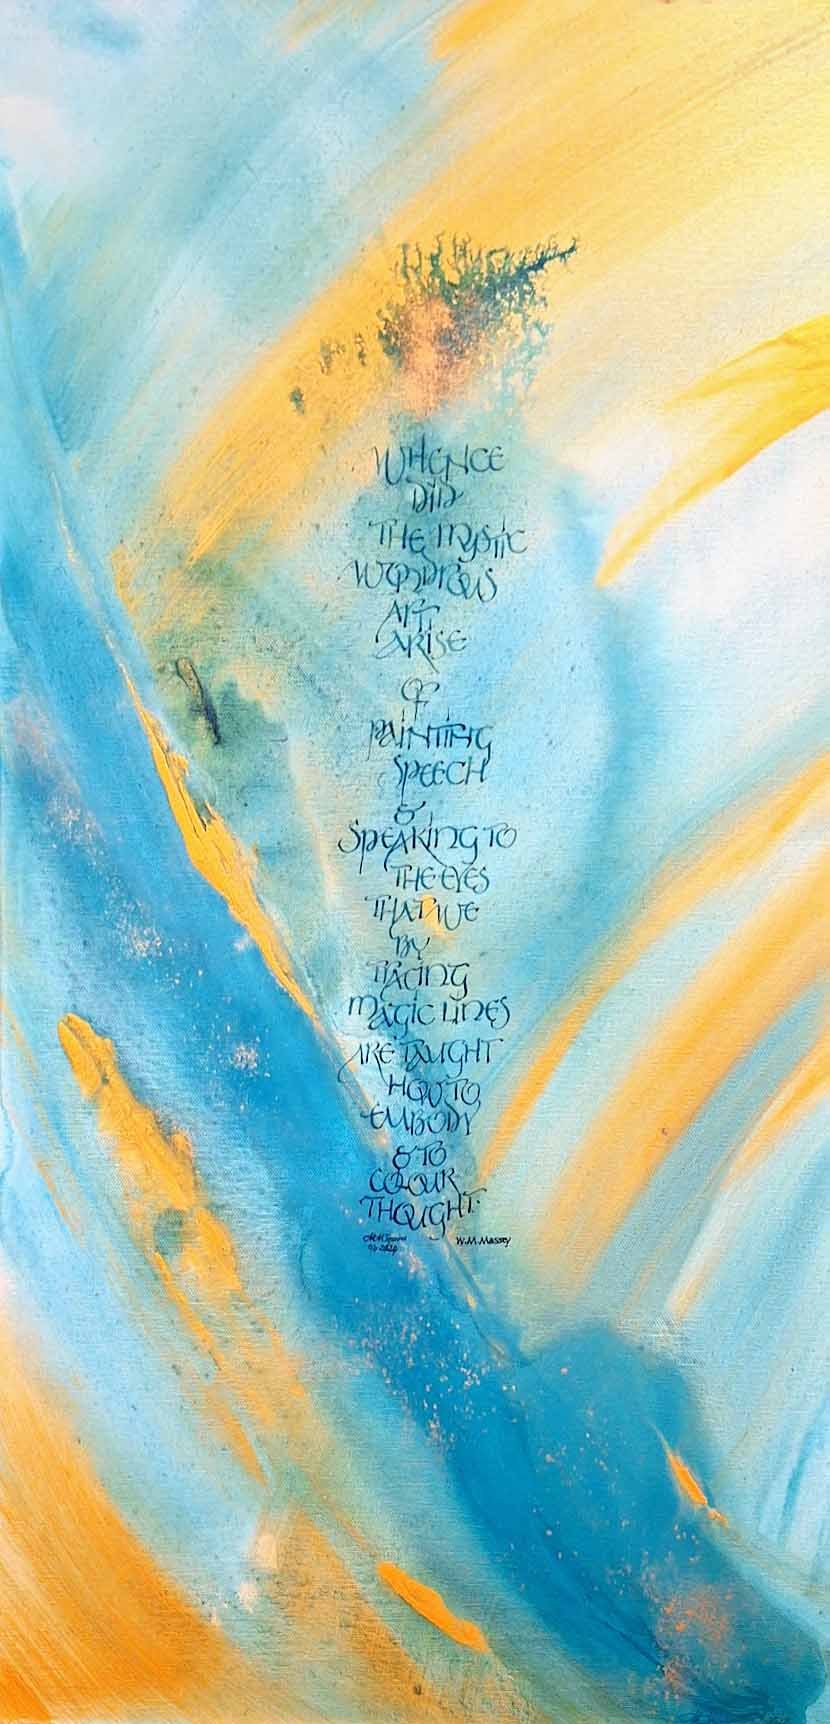 WHENCE
DID
THE MYSTIC
WONDROUS
ART
ARISE
OF
PAINTING
SPEECH
&
SPEAKING TO
THE EYES
THAT WE
BY
TRACING
MAGIC LINES
ARE TAUGHT
HOW TO
EMBODY
& TO
COLOUR
THOUGHT.
W.M.Massey